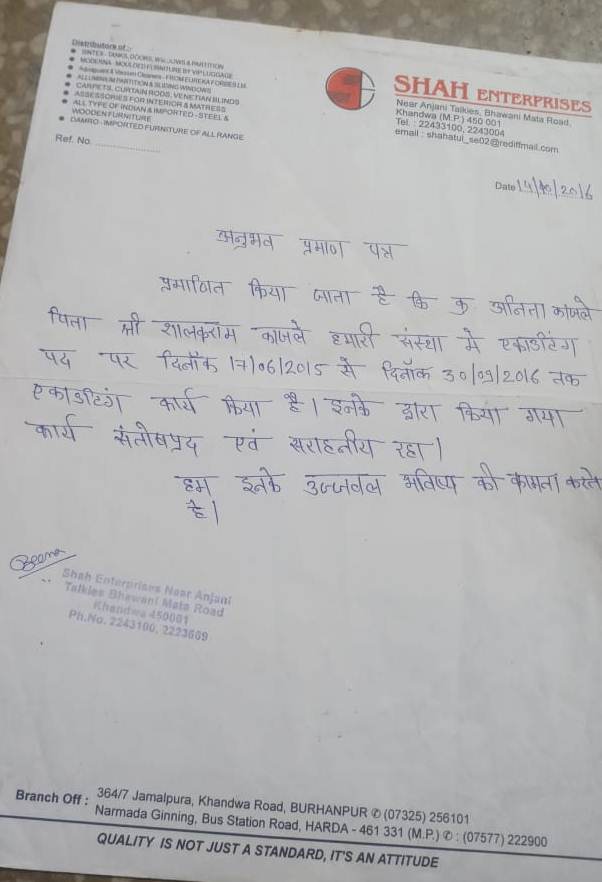 Distributors of :-
● SINTEX - TANKS, DOORS, WINDOWS & PARTITION
● MODERNA - MOULDED FURNITURE BY VIP LUGGAGE
● Aquaguard & Vacuum Cleaners - FROM EUREKA FORBES Ltd.
● ALLUMINIUM PARTITION & SLIDING WINDOWS
● CARPETS, CURTAIN RODS, VENETIAN BLINDS
● ASSESSORIES FOR INTERIOR & MATRESS
● ALL TYPE OF INDIAN & IMPORTED - STEEL &
WOODEN FURNITURE
● DAMRO - IMPORTED FURNITURE OF ALL RANGE
Ref. No. ....................
SHAH ENTERPRISES
Near Anjani Talkies, Bhawani Mata Road,
Khandwa (M.P.) 450 001
Tel. : 22433100, 2243004
email : shahatul_se02@rediffmail.com
Date 14/10/2016
अनुभव प्रमाण पत्र
प्रमाणित किया जाता है कि कु अनिता काजले
पिता श्री शालकराम काजले हमारी संस्था मे एकाउटिंग
पद पर दिनॉक 17/06/2015 से दिनॉक 30/09/2016 तक
एकाउटिंग कार्य किया है। इनके द्वारा किया गया
कार्य संतोषप्रद एवं सराहनीय रहा।
हम इनके उज्जवल भविष्य की कामना करते
है।
Shah Enterprises Near Anjani
Talkies Bhawani Mata Road
Khandwa 450001
Ph.No. 2243100, 2223609
Branch Off : 364/7 Jamalpura, Khandwa Road, BURHANPUR ✆ (07325) 256101
Narmada Ginning, Bus Station Road, HARDA - 461 331 (M.P.) ✆ : (07577) 222900
QUALITY IS NOT JUST A STANDARD, IT'S AN ATTITUDE